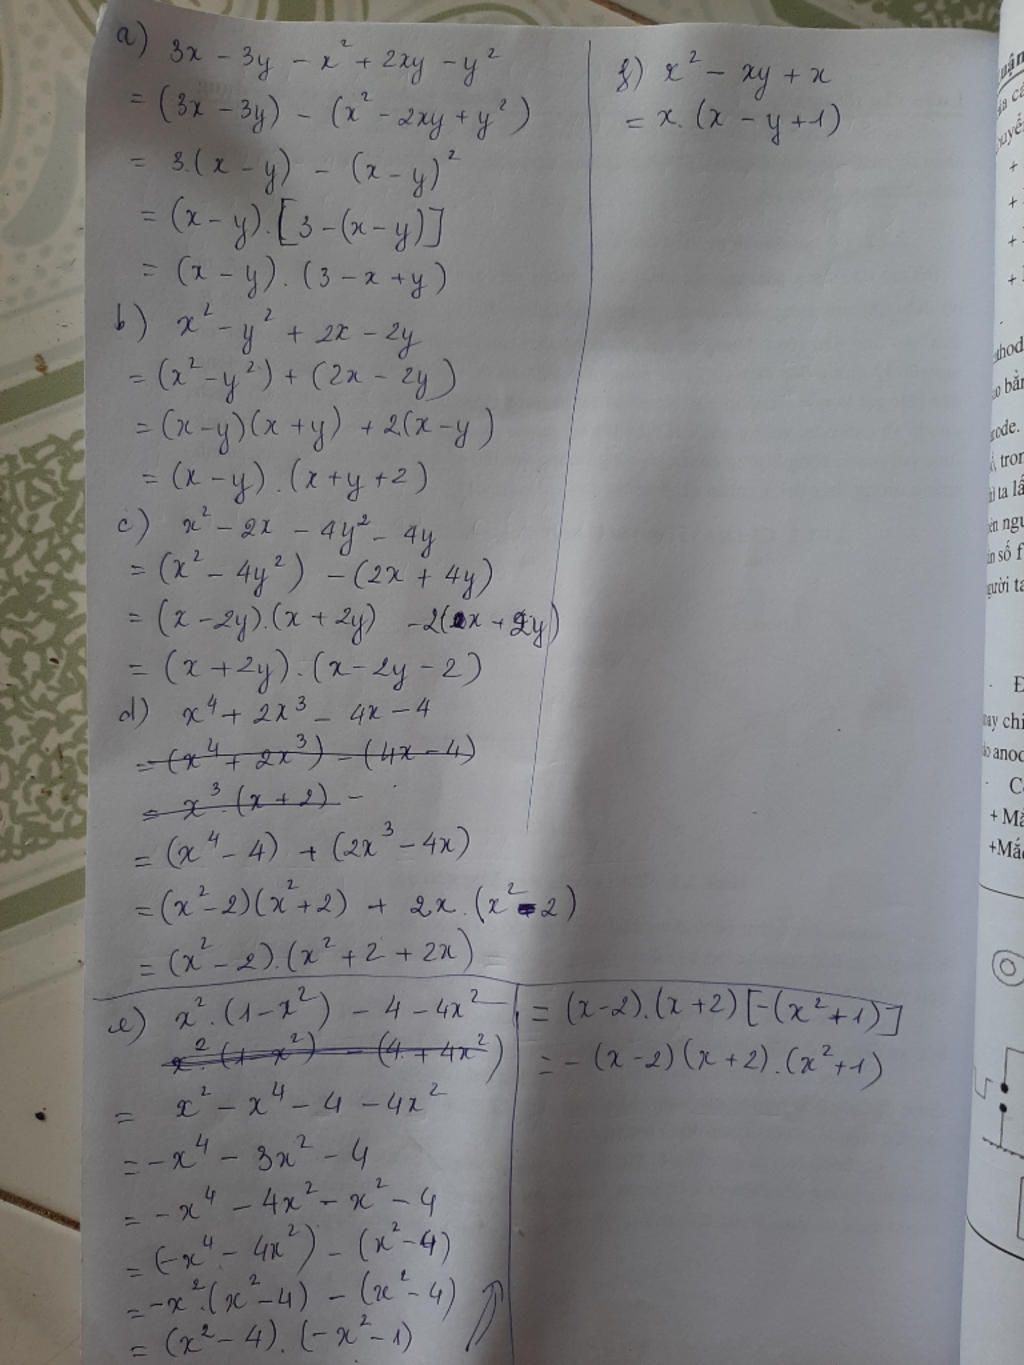 a) 3x - 3y - x² + 2xy - y²
= (3x - 3y) - (x² - 2xy + y²)
= 3.(x - y) - (x - y)²
= (x - y).[3 - (x - y)]
= (x - y).(3 - x + y)
b) x² - y² + 2x - 2y
= (x² - y²) + (2x - 2y)
= (x - y)(x + y) + 2(x - y)
= (x - y).(x + y + 2)
c) x² - 2x - 4y² - 4y
= (x² - 4y²) - (2x + 4y)
= (x - 2y).(x + 2y) - 2(x + 2y)
= (x + 2y).(x - 2y - 2)
d) x⁴ + 2x³ - 4x - 4
= (x⁴ + 2x³) - (4x - 4)
= x³.(x + 2) -
= (x⁴ - 4) + (2x³ - 4x)
= (x² - 2)(x² + 2) + 2x.(x² - 2)
= (x² - 2).(x² + 2 + 2x)
e) x².(1 - x²) - 4 - 4x²
x².(1 - x²) - (4 + 4x²)
= x² - x⁴ - 4 - 4x²
= -x⁴ - 3x² - 4
= -x⁴ - 4x² - x² - 4
= (-x⁴ - 4x²) - (x² - 4)
= -x².(x² - 4) - (x² - 4)
= (x² - 4).(-x² - 1)
= (x - 2).(x + 2)[-(x² + 1)]
= -(x - 2)(x + 2).(x² + 1)
f) x² - xy + x
= x.(x - y + 1)
+
+
+
+
ao bằn
tron
ta lấ
số f
người ta
Đ
may chi
anod
+ Mắ
+Mắc